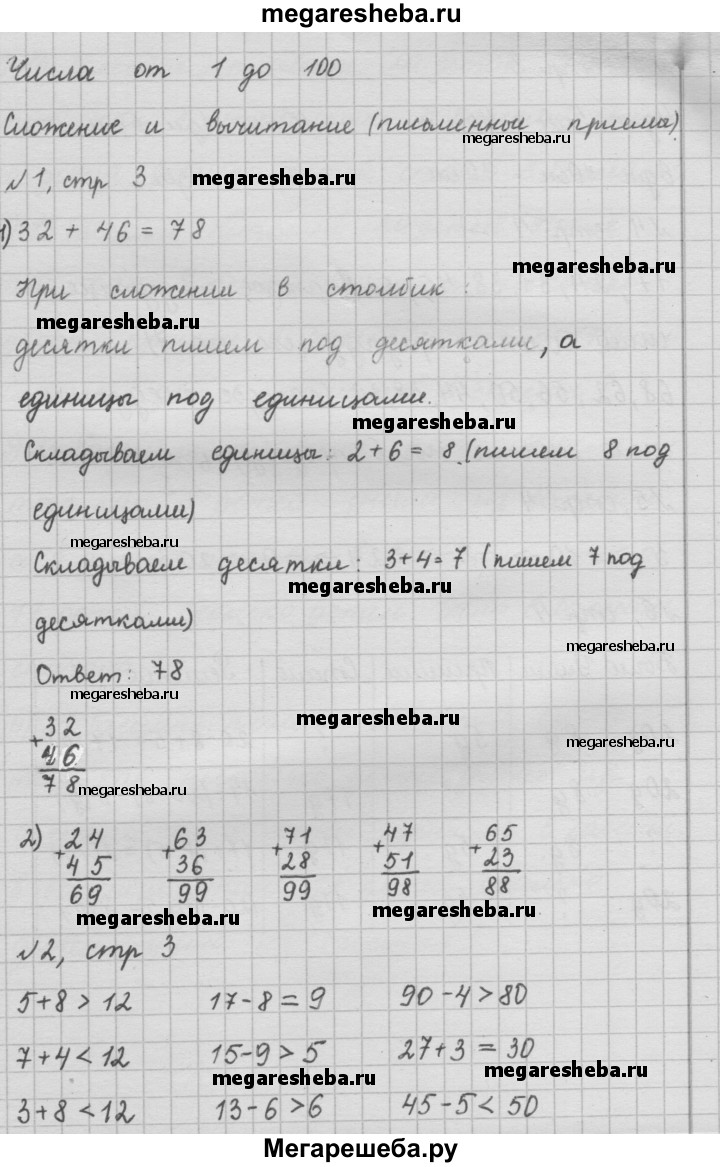 megaresheba.ru
Числа от 1 до 100
Сложение и вычитание (письменные приемы)
megaresheba.ru
№1, стр 3 megaresheba.ru
1) 32 + 46 = 78
megaresheba.ru
При сложении в столбик:
megaresheba.ru
десятки пишем под десятками, а
единицы под единицами.
megaresheba.ru
Складываем единицы: 2+6= 8 (пишем 8 под
единицами)
megaresheba.ru
Складываем десятки: 3+4=7 (пишем 7 под
megaresheba.ru
десятками)
megaresheba.ru
Ответ: 78
megaresheba.ru
megaresheba.ru
+32
46
megaresheba.ru
78 megaresheba.ru
2) +24 +63 +71 +47 +65
45 36 28 51 23
69 99 99 98 88
megaresheba.ru megaresheba.ru
№2, стр 3
5+8 > 12 17-8 = 9 90-4 > 80
7+4 < 12 15-9 > 5 27+3 = 30
megaresheba.ru megaresheba.ru
3+8 < 12 13-6 > 6 45-5 < 50
Мегарешеба.ру